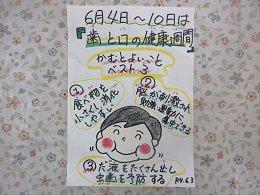 6月4日～10日は
『歯と口の健康週間』
かむとよいこと
ベスト3
①
食べ物を
小さくし、消化
しやすい
②
脳が刺激され
③だ液をたくさん出し
虫歯を予防する
R4.6.3